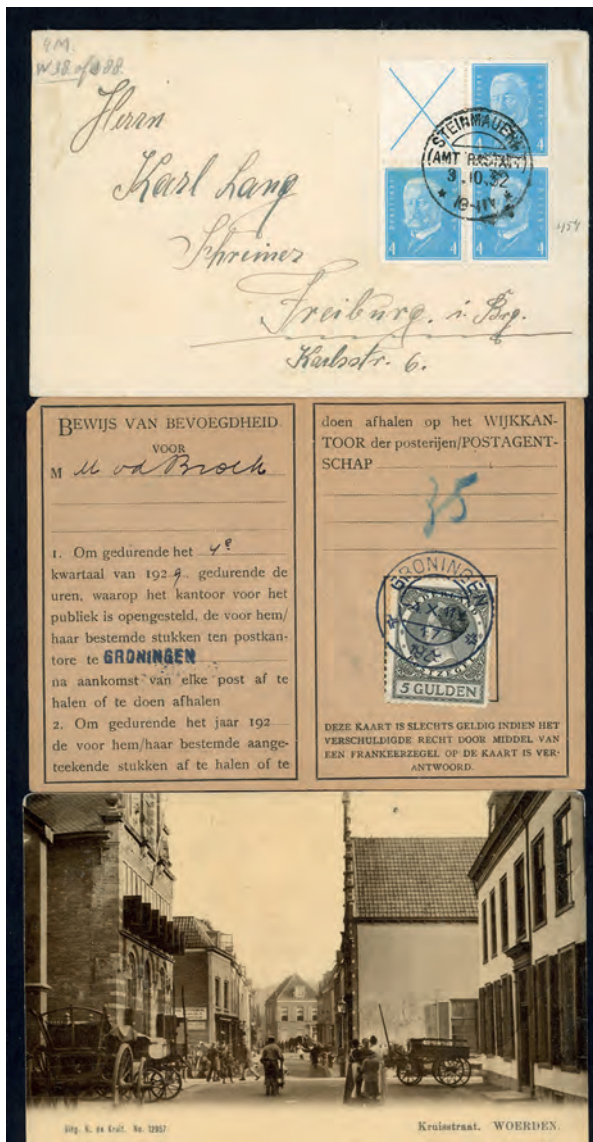 9M.
W 38.
Herrn
Karl Lang
Schreiner
Freiburg. i. Brg.
Karlsstr. 6.
4
4 4
STEINMAUERN
(AMT RASTATT)
3.10.32
BEWIJS VAN BEVOEGDHEID
VOOR
M M vd Broek
1. Om gedurende het 4e
kwartaal van 1929 gedurende de
uren, waarop het kantoor voor het
publiek is opengesteld, de voor hem/
haar bestemde stukken ten postkan-
tore te GRONINGEN
na aankomst van elke post af te
halen of te doen afhalen
2. Om gedurende het jaar 192
de voor hem/haar bestemde aange-
teekende stukken af te halen of te
doen afhalen op het WIJKKAN-
TOOR der posterijen/POSTAGENT-
SCHAP
35
GRONINGEN
5 GULDEN
DEZE KAART IS SLECHTS GELDIG INDIEN HET
VERSCHULDIGDE RECHT DOOR MIDDEL VAN
EEN FRANKEERZEGEL OP DE KAART IS VER-
ANTWOORD.
Uitg. K. de Kruit. No. 12957
Kruisstraat. WOERDEN.